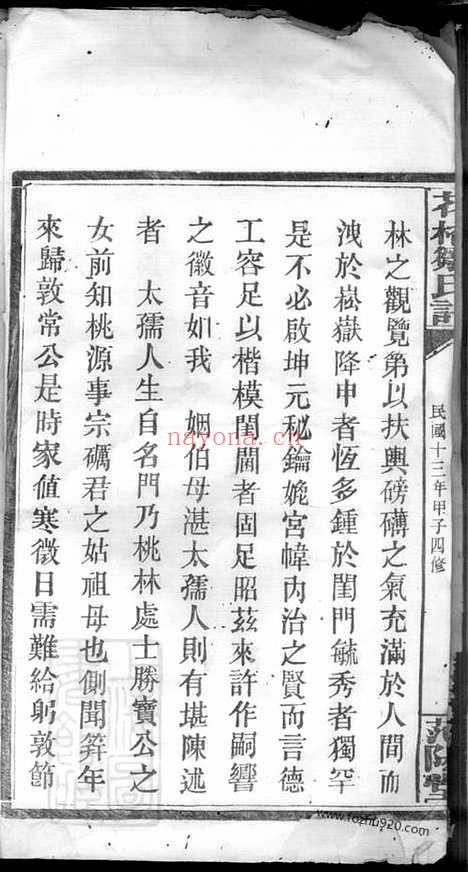 鄒氏譜
民國十三年甲子四修
范陽堂
林之觀覽第以扶輿磅礴之氣充滿於人間而
洩於崧嶽降申者恆多鍾於閨門毓秀者獨罕
是不必啟坤元秘鑰娩宮幃內治之賢而言德
工容足以楷模閨閫者固足昭茲來許作嗣響
之徽音如我 姻伯母湛太孺人則有堪陳述
者 太孺人生自名門乃桃林處士勝寶公之
女前知桃源事宗礪君之姑祖母也側聞筓年
來歸敦常公是時家值寒微日需難給躬敦節
nayona.cn
www.fozhu920.com